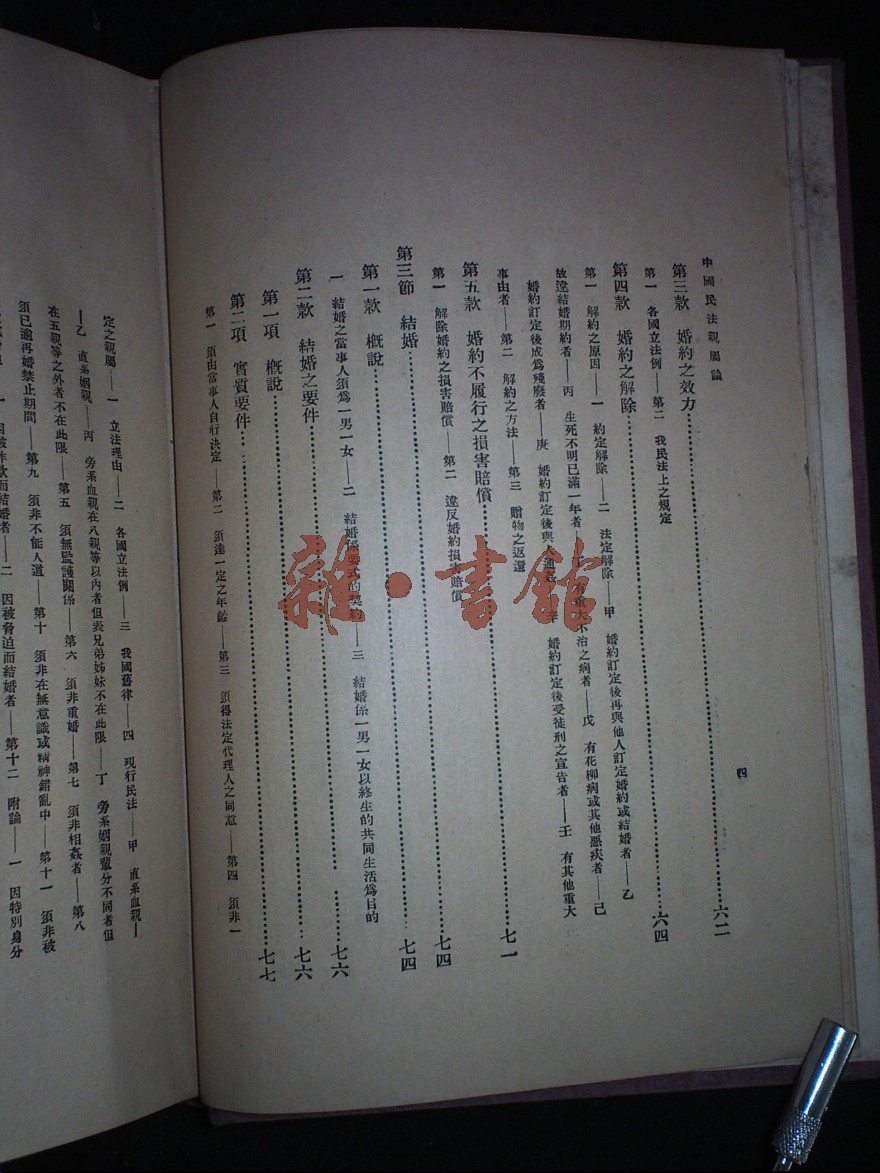 中國民法親屬論
四
第三款 婚約之效力……六二
第一 各國立法例——第二 我民法上之規定
第四款 婚約之解除……六四
第一 解約之原因——一 約定解除——二 法定解除——甲 婚約訂定後再與他人訂定婚約或結婚者——乙
故違結婚期約者——丙 生死不明已滿一年者——丁 有重大不治之病者——戊 有花柳病或其他惡疾者——己
婚約訂定後成為殘廢者——庚 婚約訂定後與人通姦者——辛 婚約訂定後受徒刑之宣告者——壬 有其他重大
事由者——第二 解約之方法——第三 贈物之返還
第五款 婚約不履行之損害賠償……七一
第一 解除婚約之損害賠償——第二 違反婚約損害賠償
第三節 結婚……七四
第一款 概說……七四
一 結婚之當事人須為一男一女——二 結婚係要式的契約——三 結婚係一男一女以終生的共同生活為目的
第二款 結婚之要件……七六
第一項 概說……七六
第二項 實質要件……七七
第一 須由當事人自行決定——第二 須達一定之年齡——第三 須得法定代理人之同意——第四 須非一
定之親屬——一 立法理由——二 各國立法例——三 我國舊律——四 現行民法——甲 直系血親——
——乙 直系姻親 丙 旁系血親在八親等以內者但表兄弟姊妹不在此限——丁 旁系姻親輩分不同者但
在五親等之外者不在此限——第五 須無監護關係——第六 須非重婚——第七 須非相姦者——第八
須已逾再婚禁止期間——第九 須非不能人道——第十 須非在無意識或精神錯亂中——第十一 須非被
因被詐欺而結婚者——二 因被脅迫而結婚者——第十二 附論——一 因特別身分
雜·書館